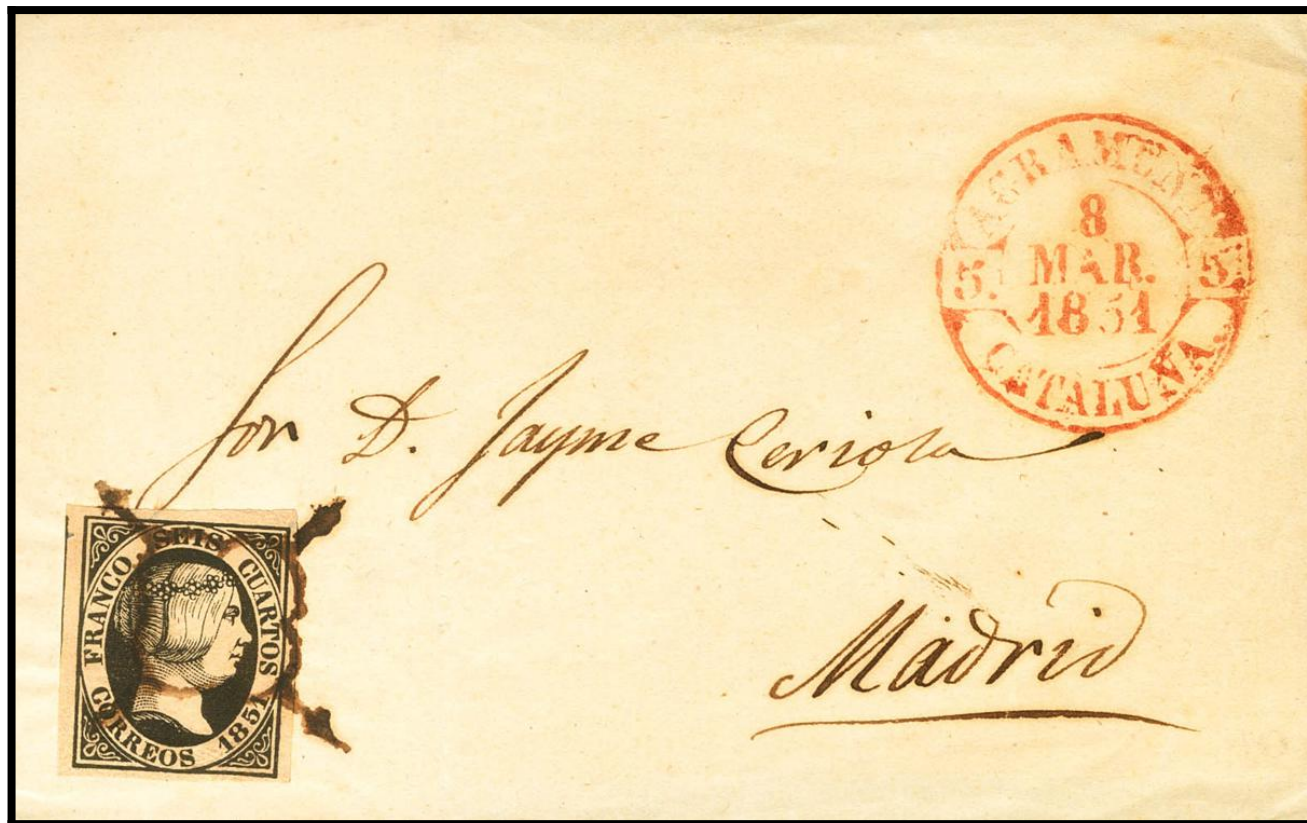 AGRAMUNT
8
MAR.
1851
5. 5.
CATALUÑA.
Sor D. Jayme Ceriola
Madrid
FRANCO. SEIS CUARTOS
CORREOS 1851